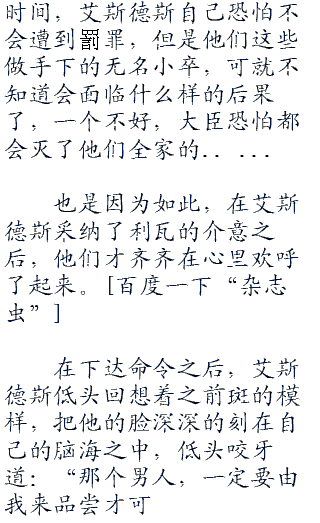 时间，艾斯德斯自己恐怕不
会遭到罰罪，但是他们这些
做手下的无名小卒，可就不
知道会面临什么样的后果
了，一个不好，大臣恐怕都
会灭了他们全家的．．．．．
也是因为如此，在艾斯
德斯采纳了利瓦的介意之
后，他们才齐齐在心里欢呼
了起来。[百度一下“杂志
虫”]
在下达命令之后，艾斯
德斯低头回想着之前斑的模
样，把他的脸深深的刻在自
己的脑海之中，低头咬牙
道：“那个男人，一定要由
我来品尝才可